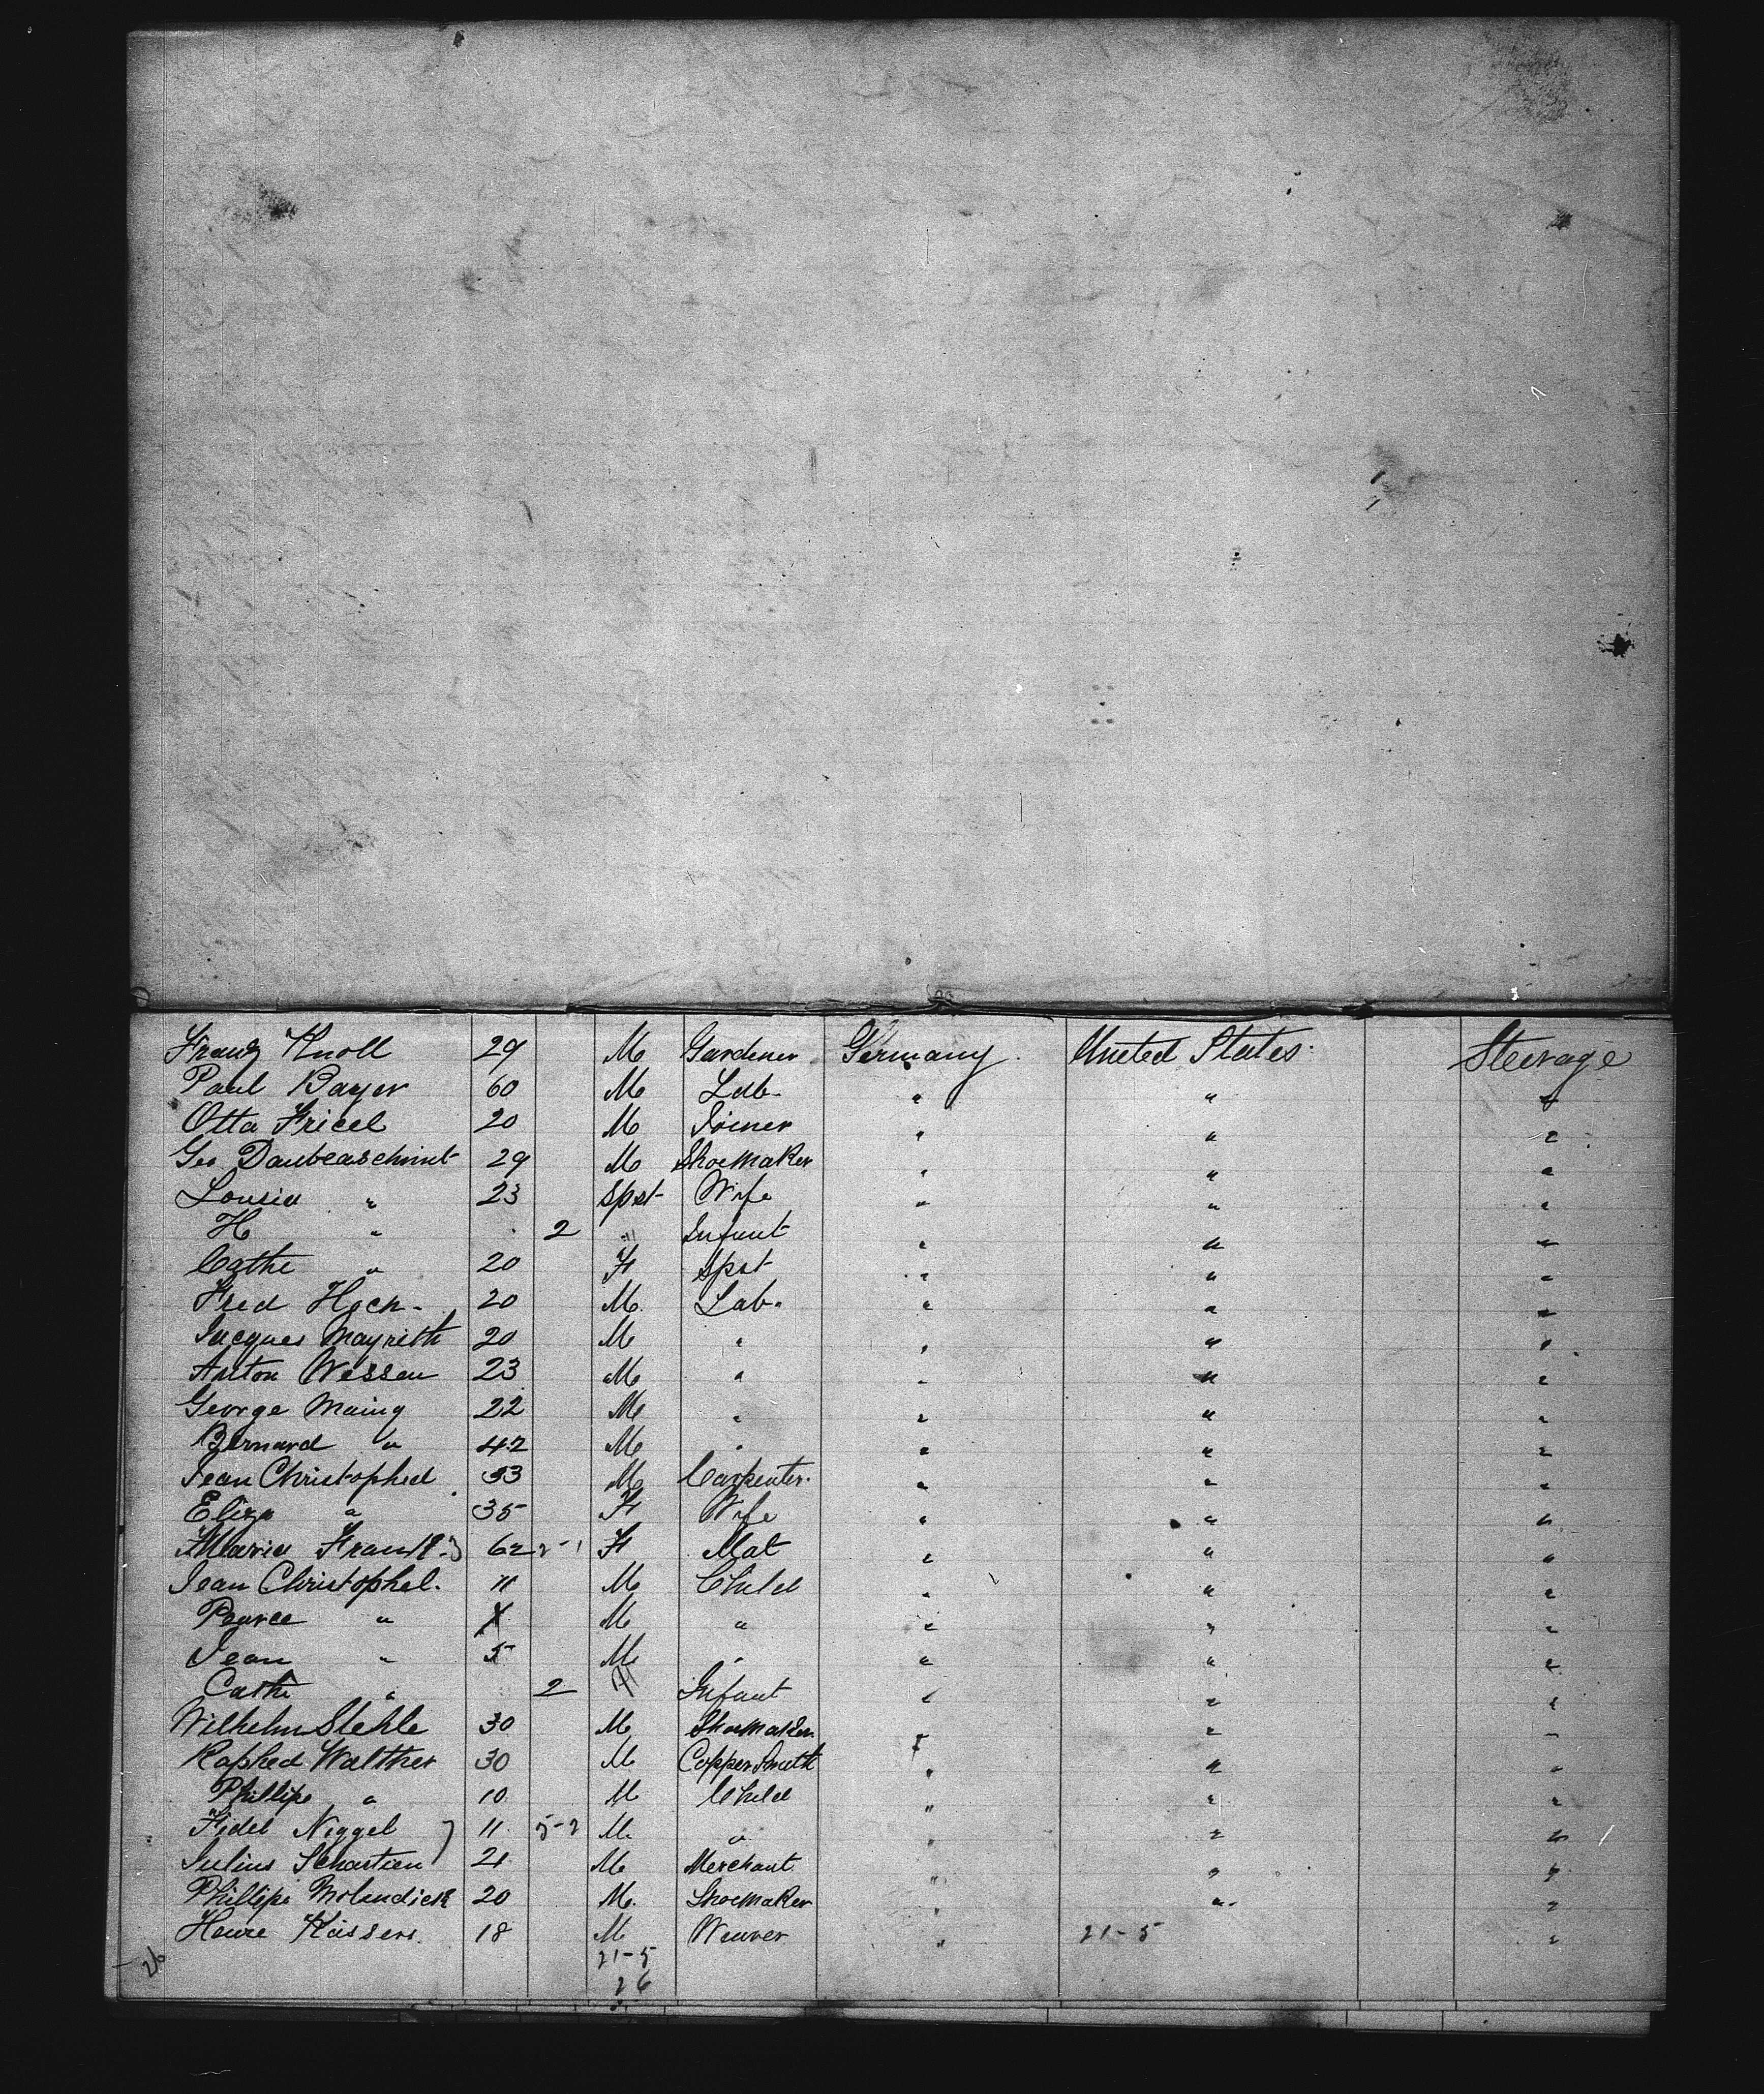 Franz Knoll 29 M Gardener Germany United States Steerage
Paul Bayer 60 M Lab- " " "
Otto Fricel 20 M Joiner " " "
Geo Daubenschmit 29 M Shoemaker " " "
Lousia " 23 spst Wife " " "
H " 2 " Infant " " "
Cathe " 20 F spst " " "
Fred Hoch- 20 M. Lab. " " "
Jacques Mayrith 20 M " " " "
Anton Wessen 23 M " " " "
George Maing 22 M " " " "
Bernard " 42 M " " " "
Jean Christophel 33 M Carpenter. " " "
Eliza " 35 F Wife " " "
Maria Frank 62 2-1 F Mat " " "
Jean Christophel. 11 M Child " " "
Pearce " M " " " "
Jean " 5 M " " " "
Cathe " 2 F Infant " " "
Wilhelm Stehle 30 M Shoemaker " " "
Raphed Walther 30 M Copper Smith " " "
Phillipe " 10 M Child " " "
Fidel Niggel 11 5-2 M. " " " "
Julius 21 M Merchant " " "
Phillipe 20 M. Shoemaker " " "
Henre Kassers. 18 M Weaver " 21-5 "
26 21-5
26